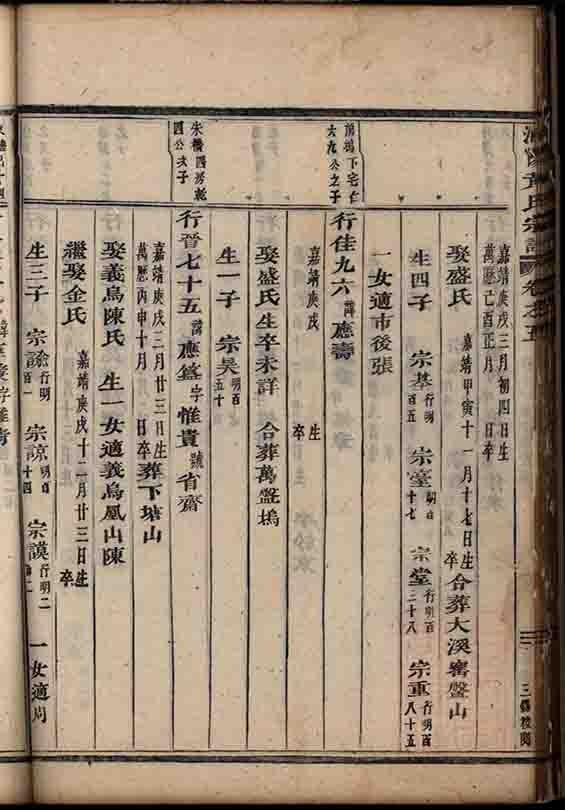 黃氏宗譜 卷之五
三修校閱
嘉靖庚戌三月初四日生
萬歷己酉正月 日卒
娶盛氏 嘉靖甲寅十一月十七日生 卒 合葬大溪窰盤山
生四子 宗基行明百五 宗臺明百十七 宗堂行明百三十八 宗重行明百八十五
一女適市後張
前塢下宅仁六九公之子
行佳九六諱應壽
嘉靖庚戌 生 卒
娶盛氏生卒未詳 合葬萬盤塢
生一子 宗昊明百五十
朱橋四房乾四公次子
行晉七十五諱應 字惟貴號省齋
嘉靖庚戌二月廿三日生
萬歷丙申十月 日卒 葬下塘山
娶義烏陳氏 生一女適義烏鳳山陳
繼娶金氏 嘉靖庚戌十二月廿三日生 卒
生三子 宗諭行明百一 宗諒明百十四 宗謨行明二 一女適周